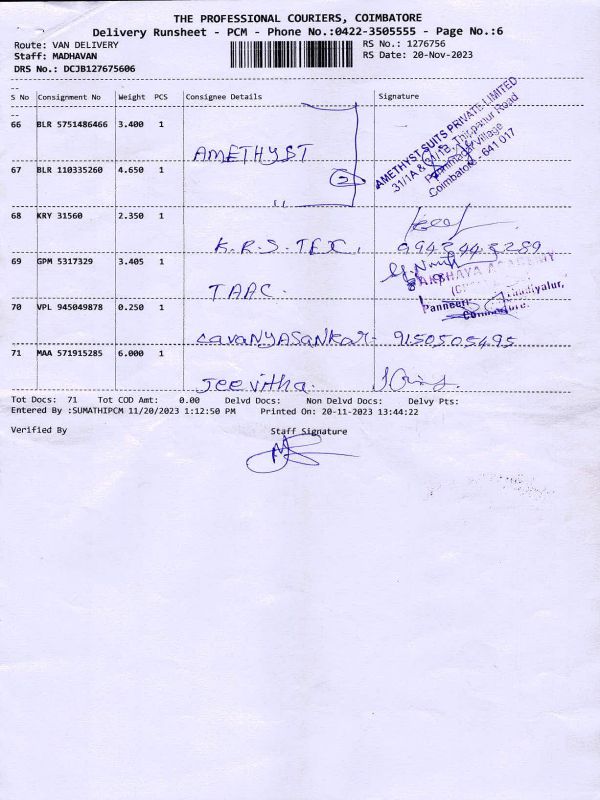 THE PROFESSIONAL COURIERS, COIMBATORE
Delivery Runsheet - PCM - Phone No.:0422-3505555 - Page No.:6
Route: VAN DELIVERY RS No.: 1276756
Staff: MADHAVAN RS Date: 20-Nov-2023
DRS No.: DCJB127675606
S No Consignment No Weight PCS Consignee Details Signature
66 BLR 5751486466 3.400 1
AMETHYST
AMETHYST SUITS PRIVATE LIMITED
31/1A & 31/1B, Road
Village
Coimbatore - 641 017
67 BLR 110335260 4.650 1
2
"
68 KRY 31560 2.350 1
K.R.S.TEX.
69 GPM 5317329 3.405 1
TAAC.
AKSHAYA ACADEMY
70 VPL 945049878 0.250 1
LavanyASankar. 9150505495
71 MAA 571915285 6.000 1
Jeevitha.
Tot Docs: 71 Tot COD Amt: 0.00 Delvd Docs: Non Delvd Docs: Delvy Pts:
Entered By :SUMATHIPCM 11/20/2023 1:12:50 PM Printed On: 20-11-2023 13:44:22
Verified By Staff Signature